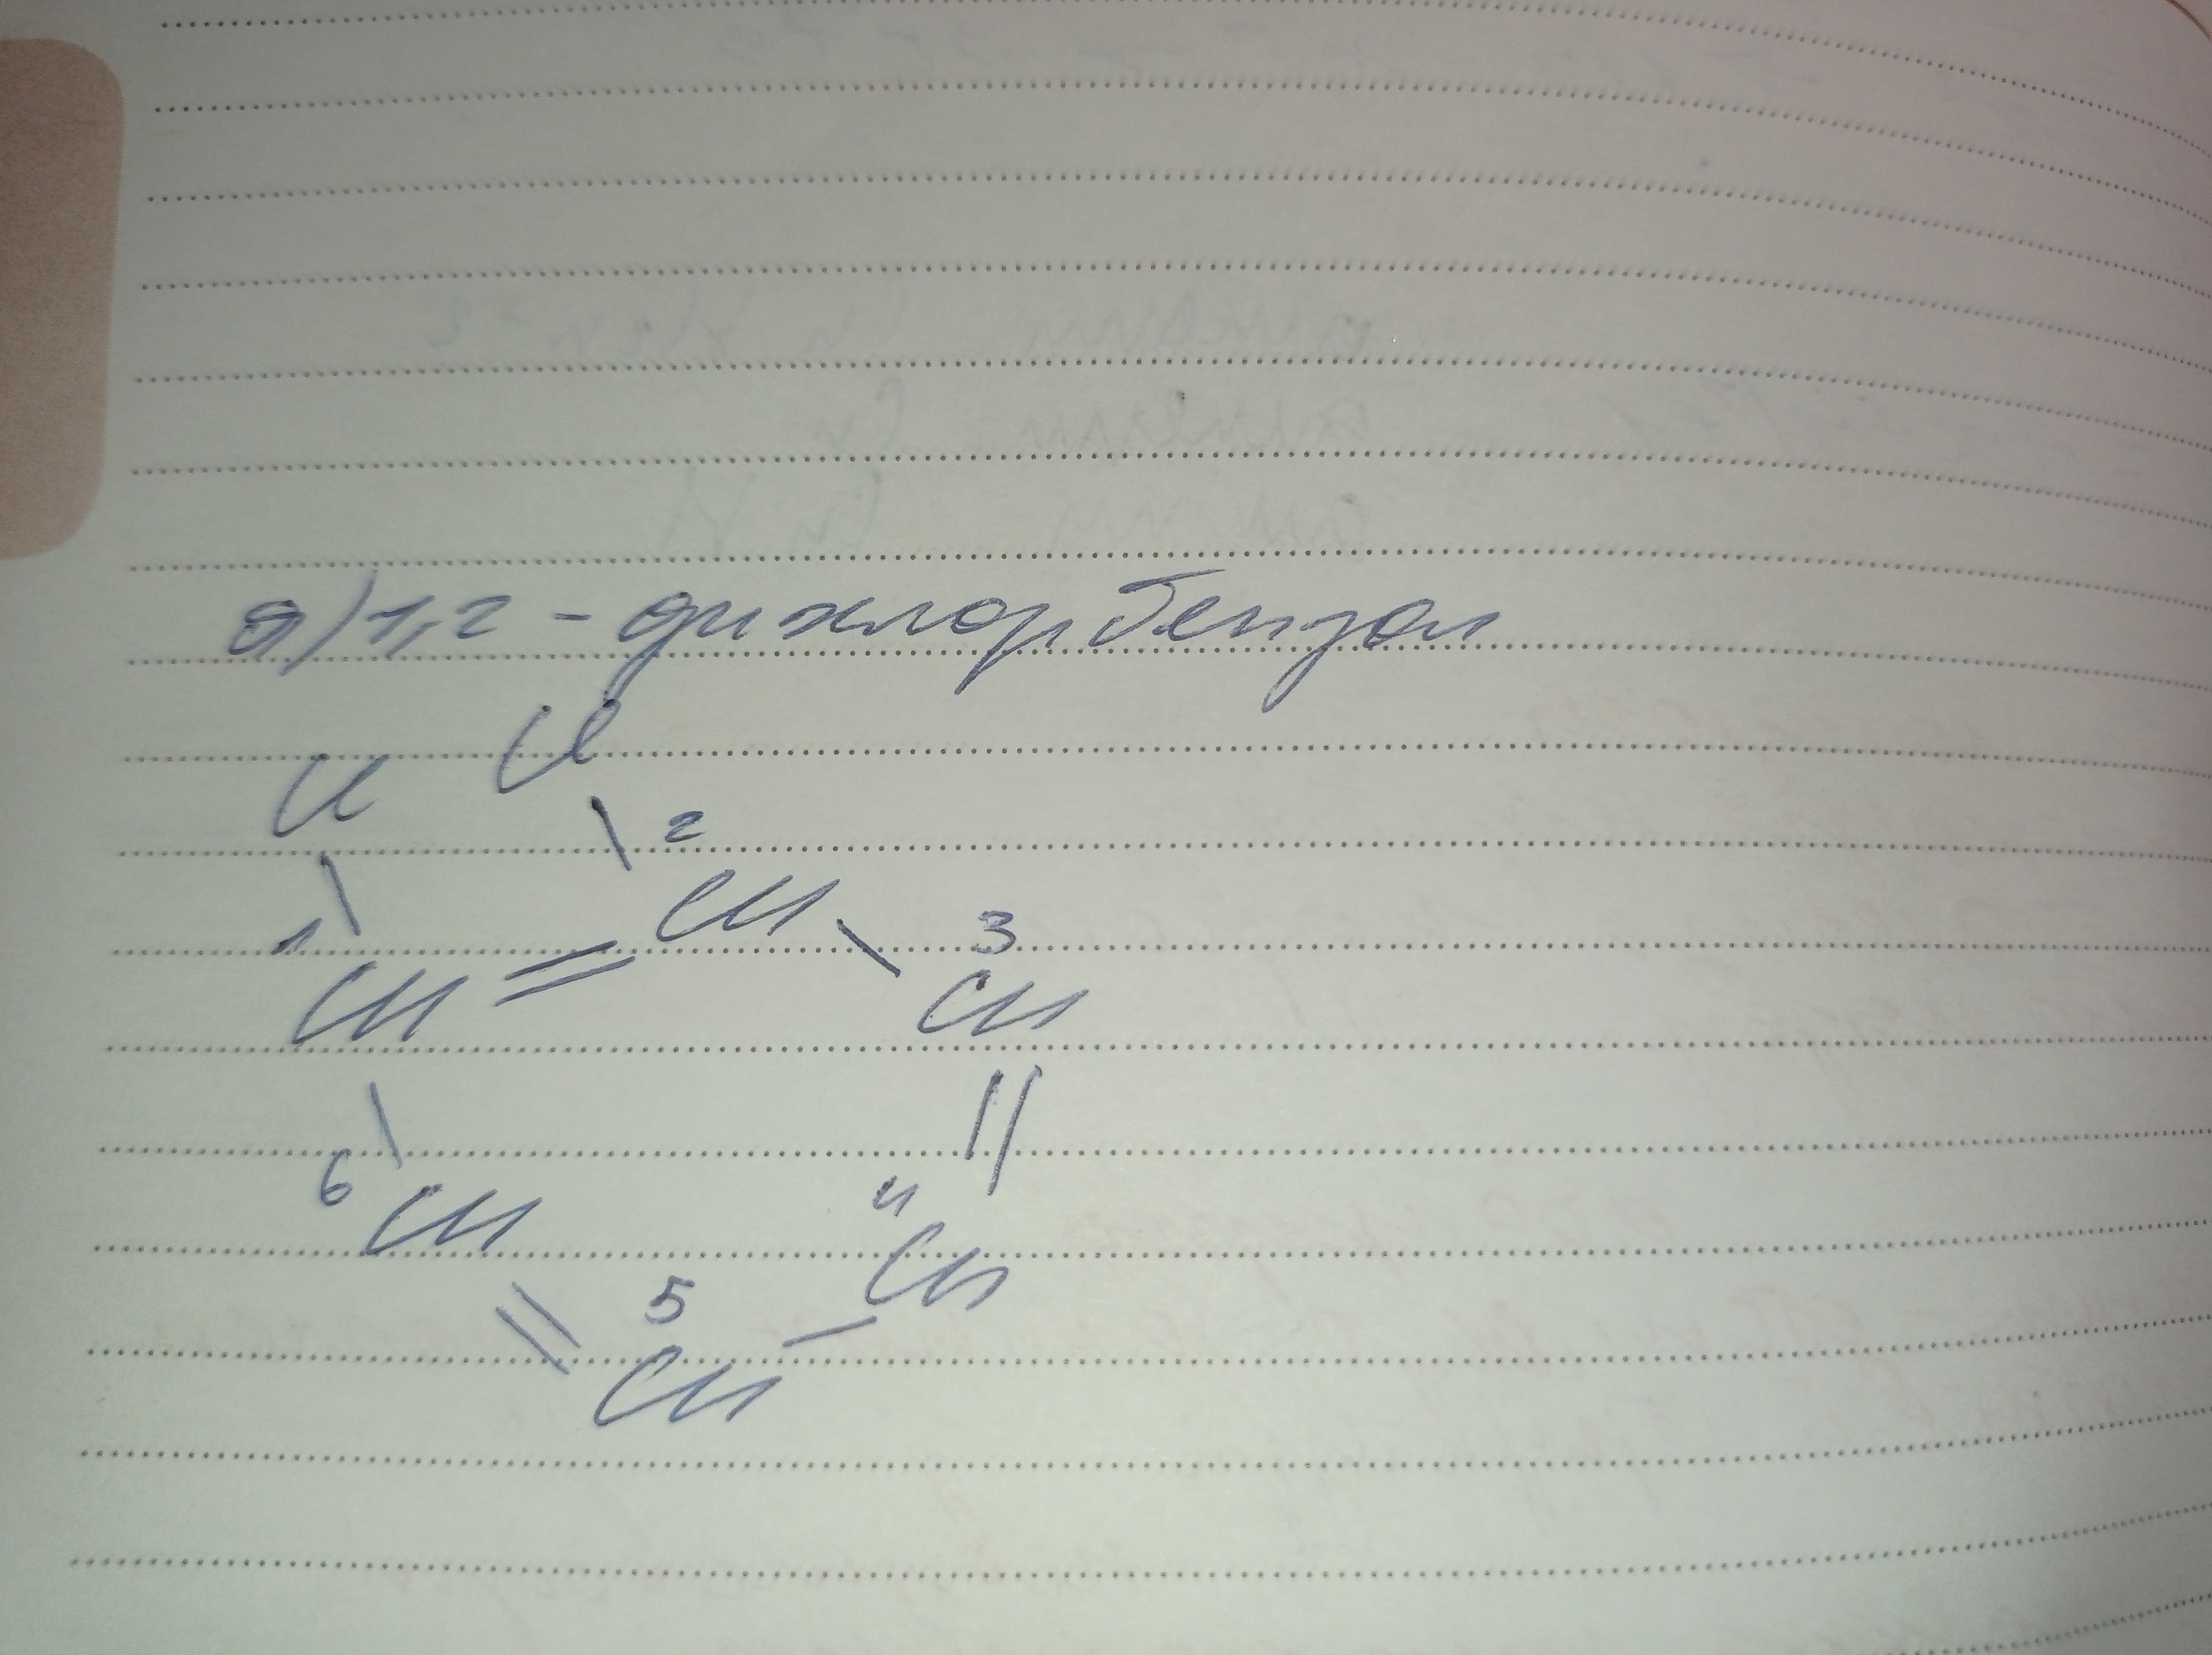 д) 1,2 - дихлорбензол
Cl Cl
2
CH 3
1
CH = CH
||
6 4
CH CH
5
|| CH —